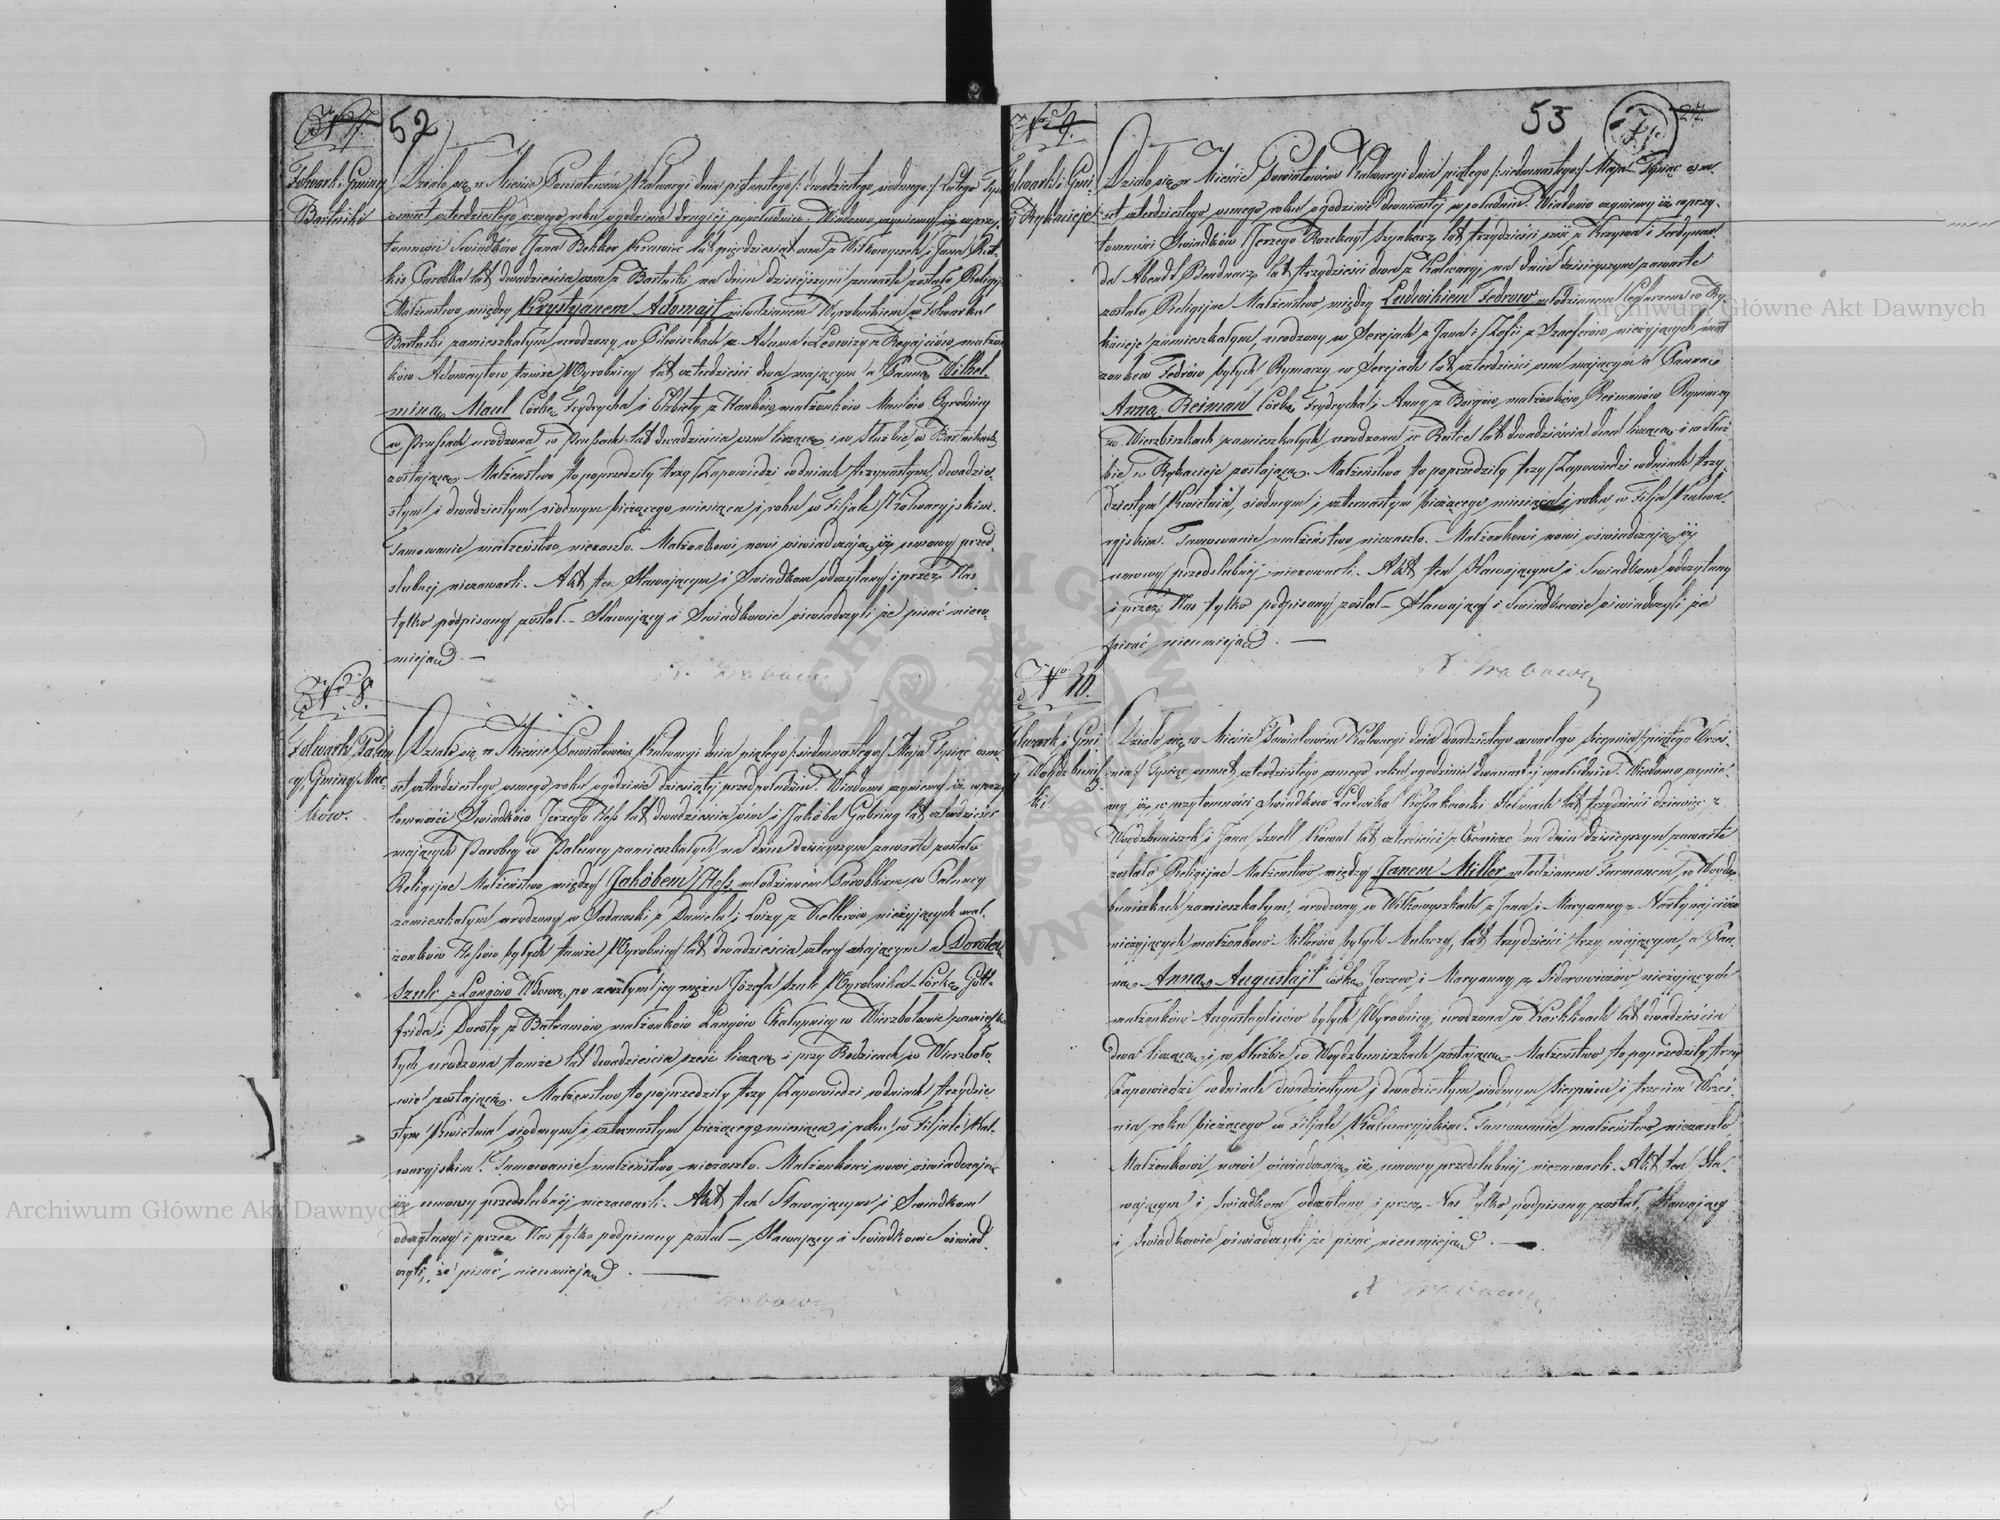 52
Nro 7.
Folwark i Gmina
Bartniki
Działo się w Mieście Powiatowem Kalwaryi dnia piętnastego /: dwudziestego siódmego :/ Lutego Tysiąc
osmset czterdziestego osmego roku o godzinie drugiej popołudniu. Wiadomo czynimy, iż w przy-
tomności Świadków Jana Bekker Krawiec lat pięćdziesiąt osm z Wiłkowyszek i Jana
Parobka lat dwadzieścia osm z Bartnik na dniu dzisiejszym zawarte zostało Religijne
Małżeństwo między Krystyanem Adomajt młodzianem Wyrobnikiem w Folwarku
Bartniki zamieszkałym, urodzony w Pilwiszkach z Adama i Lowizy z małżon-
ków Adomajtów tamże Wyrobnicy lat czterdzieści dwa mającym a Panną Wilhel-
miną Maul Córką Frydrycha i Elżbiety z Hanków małżonków Maulów Ogrodnicy
w Prusach urodzona w Prusach lat dwadzieścia osm liczącą i w służbie w Bartnikach
zostającą. Małżeństwo to poprzedziły trzy Zapowiedzi w dniach trzynastym, dwudzie-
stym i dwudziestym siódmym bieżącego miesiąca i roku w Filiale Kalwaryjskim.
Tamowanie małżeństwa niezaszło. Małżonkowi nowi oświadczają iż umowy przed-
ślubnej niezawarli. Akt ten Stawającym i Świadkom odczytany i przez Nas
tylko podpisany został. - Stawający i Świadkowie oświadczyli że pisać nieu-
mieją. —
Nro 8.
Folwark Palun-
cy, Gminy Mac-
ków.
Działo się w Mieście Powiatowem Kalwaryi dnia piątego /: siedemnastego :/ Maja Tysiąc osm-
set czterdziestego osmego roku o godzinie dziewiątej przed południem. Wiadomo czynimy iż w przy-
tomności Świadków Jerzego Hess lat dwadzieścia osm i Jakóba Gubring lat czterdzieści
mających Parobcy w Paluncy zamieszkałych na dniu dzisiejszym zawarte zostało
Religijne Małżeństwo między Jakóbem Hess młodzianem Parobkiem w Paluncy
zamieszkałym urodzony w Sadowski z Daniela i Luizy z Kellerów nieżyjących mał-
żonków Hessów byłych tamże Wyrobnicy lat dwadzieścia cztery mającym a Dorotą
Szulc z Langów Wdową po zeszłym jej mężu Józefa Szulc Wyrobnika córką Gott-
frida i Doroty z Batramów małżonków Langów Chałupnicy w Wierzbołowie zamieszka-
łych urodzona tamże lat dwadzieścia sześć liczącą i przy Rodzicach w Wierzboło-
wie zostającą. Małżeństwo to poprzedziły trzy Zapowiedzi w dniach trzydzie-
stym Kwietnia siódmym i czternastym bieżącego miesiąca i roku w Filjale Kal-
waryjskim. Tamowanie małżeństwa niezaszło. Małżonkowi nowi oświadczają
iż umowy przedślubnej niezawarli. Akt ten Stawającym i Świadkom
odczytany i przez Nas tylko podpisany został - Stawający i Świadkowie oświad-
czyli, że pisać nieumieją. —
53
27
Nro 9.
Folwark i Gmi-
ny Rykacieje
Działo się w Mieście Powiatowem Kalwaryi dnia piątego /: siedemnastego :/ Maja Tysiąc osm-
set czterdziestego osmego roku o godzinie dwunastej w południe. Wiadomo czynimy iż w przy-
tomności Świadków Jerzego Rozekayt Szynkarz lat trzydzieści sześć z i Ferdynan-
da Abendt Bednarz lat trzydzieści dwa z Kalwaryi, na dniu dzisiejszym zawarte
zostało Religijne Małżeństwo między Ludwikiem Fedrow młodzianem Ceglarzem w Ry-
kacieje zamieszkałym, urodzony w Serejach z Jana i Zofii z Szaeferów nieżyjących mał-
żonków Fedrów byłych Rymarzy w Serejach lat czterdzieści osm mającym a Panną
Anną Reiman Córką Frydrycha i Anny z małżonków Reimanów Rymarzy
w Wierzbiszkach zamieszkałych urodzona w lat dwadzieścia dwa liczącą i w służ-
bie w Rykacieje zostającą. Małżeństwo to poprzedziły trzy Zapowiedzi w dniach trzy-
dziestym Kwietnia, siódmym i czternastym bieżącego miesiąca i roku w Filjale Kalwa-
ryjskim. Tamowanie małżeństwa niezaszło. Małżonkowi nowi oświadczają iż
umowy przedślubnej niezawarli. Akt ten Stawającym i Świadkom odczytany
i przez Nas tylko podpisany został - Stawający i Świadkowie oświadczyli że
pisać nieumieją. —
Nro 10.
Folwark i Gmi-
ny Wojdzbunisz-
ki
Działo się w Mieście Powiatowem Kalwaryi dnia dwudziestego czwartego Sierpnia /: piątego Wrze-
śnia :/ Tysiąc osmset czterdziestego osmego roku o godzinie dwunastej w południe. Wiadomo czyni-
my iż w przytomności Świadków Ludwika Kossakowski Stelmach lat trzydzieści dziewięć z
Wojdzbuniszek i Jana Szvell Kowal lat czterdzieści z na dniu dzisiejszym zawarte
zostało Religijne Małżeństwo między Janem Miller młodzianem Furmanem w Wojdz-
buniszkach zamieszkałym, urodzony w Wiłkowyszkach z Jana i Maryanny z
nieżyjących małżonków Millerów byłych Mularzy, lat trzydzieści trzy mającym a Pan-
ną Anną Augustajt córką Jerzego i Maryanny z Sidorowiczów nieżyjących
małżonków Augustajtisów byłych Wyrobnicy, urodzona w lat dwadzieścia
dwa liczącą i w służbie w Wojdzbuniszkach zostającą. Małżeństwo to poprzedziły trzy
Zapowiedzi w dniach dwudziestym i dwudziestym siódmym Sierpnia i trzecim Wrześ-
nia roku bieżącego w Filjale Kalwaryjskim. Tamowanie małżeństwa niezaszło
Małżonkowi nowi oświadczają iż umowy przedślubnej niezawarli. Akt ten Sta-
wającym i Świadkom odczytany i przez Nas tylko podpisany został, Stawający
i Świadkowie oświadczyli że pisać nieumieją. —
Archiwum Główne Akt Dawnych
Archiwum Główne Akt Dawnych